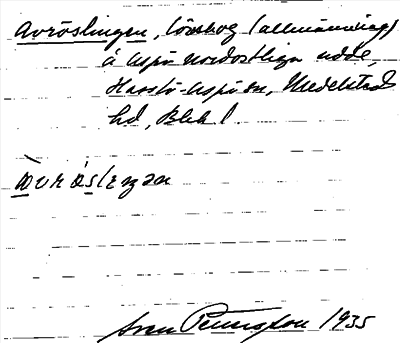 Avröslingen, lövskog (allmänning)
å Aspö nordostliga udde,
Hasslö-Aspö sn, Medelstads
hd, Blek l.
ävrö́sleŋən
Sven Bengtson 1935